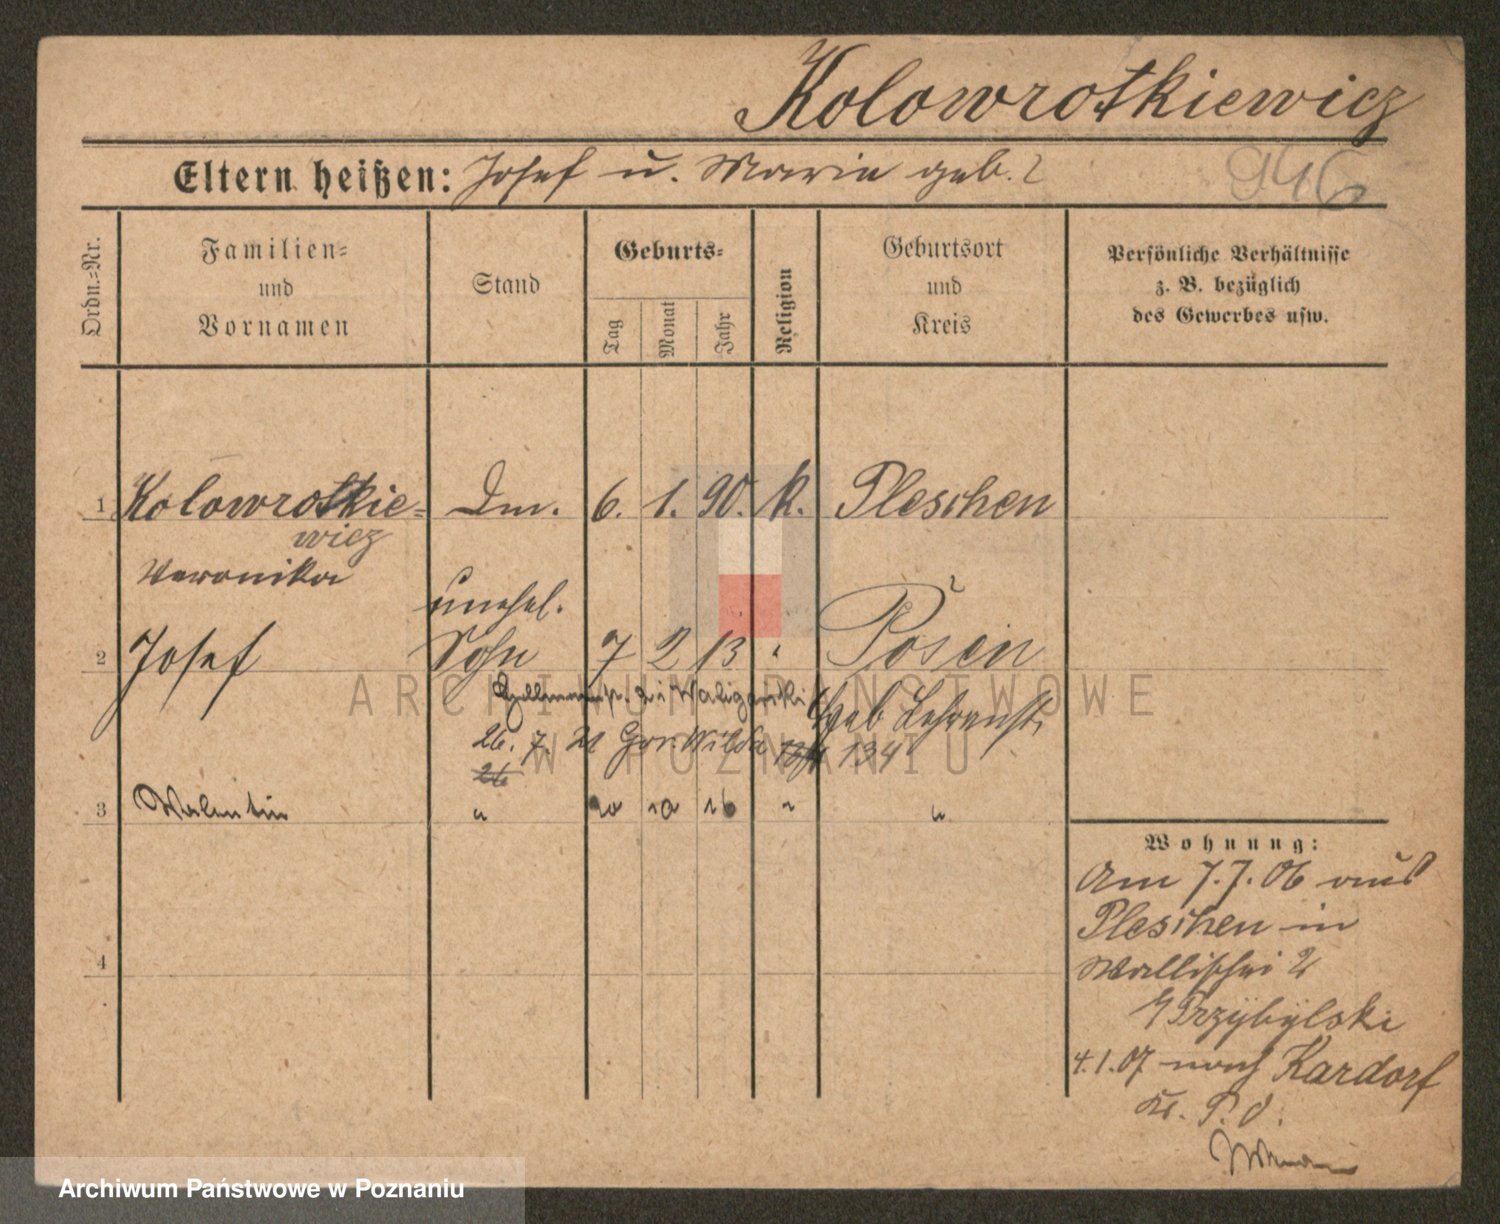 Kolowrotkiewicz
Eltern heißen: Josef u. Marie geb. ?
946
Ordn.=Nr.
Familien=
und
Vornamen
Stand
Geburts=
Tag
Monat
Jahr
Religion
Geburtsort
und
Kreis
Persönliche Verhältnisse
z. B. bezüglich
des Gewerbes usw.
1 Kolowrotkie= Dm. 6. 1. 90. k. Pleschen
wicz
Veronika
unehel.
2 Josef Sohn 7 2 13 " Posen
zu Waligorski
26. 7. 21 Wilda 134
26
3 Walentin " 20 10 16 " "
Wohnung:
Am 7.7.06 aus
Pleschen in
Wallischei 2
Przybylski
4.1.07 nach Kardorf
Kr. P. O.
4
ARCHIWUM PAŃSTWOWE
W POZNANIU
Archiwum Państwowe w Poznaniu